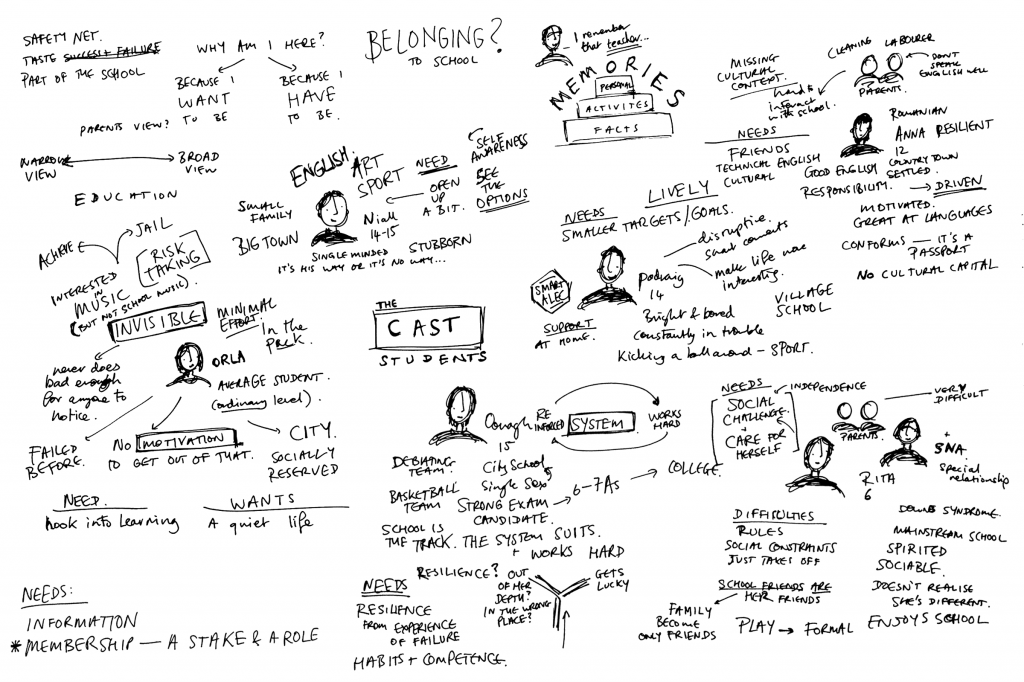 SAFETY NET.
TASTE SUCCESS + FAILURE
PART OF THE SCHOOL
WHY AM I HERE?
BECAUSE I
WANT
TO BE
BECAUSE I
HAVE
TO BE.
PARENTS VIEW?
NARROW
VIEW
BROAD
VIEW
EDUCATION
BELONGING?
TO SCHOOL
I remember
that teacher...
MEMORIES
PERSONAL
ACTIVITES
FACTS
MISSING
CULTURAL
CONTEXT.
CLEANING LABOURER
DON'T
SPEAK
ENGLISH WELL
PARENTS.
hard to
interact
with school.
NEEDS
FRIENDS
TECHNICAL ENGLISH
CULTURAL
ROMANIAN
ANNA RESILIENT
12
COUNTRY TOWN
SETTLED.
GOOD ENGLISH
RESPONSIBILITY.
DRIVEN
MOTIVATED.
GREAT AT LANGUAGES
CONFORMS — IT'S A
PASSPORT
NO CULTURAL CAPITAL
ENGLISH.
ART
SPORT
NEED
OPEN
UP
A BIT.
SELF
AWARENESS
SEE
THE
OPTIONS
SMALL
FAMILY
BIG TOWN
Niall
14-15
SINGLE MINDED
STUBBORN
IT'S HIS WAY OR IT'S NO WAY...
LIVELY
NEEDS
SMALLER TARGETS/GOALS.
disruptive.
smart comments
make life more
interesting.
SMART
ALEC
Padraig
14
SUPPORT
AT HOME.
Bright & bored
constantly in trouble
Kicking a ball around — SPORT.
VILLAGE
SCHOOL
ACHIEVE
JAIL
RISK
TAKING
INTERESTED
IN
MUSIC
(BUT NOT SCHOOL MUSIC).
INVISIBLE
MINIMAL
EFFORT.
In the
Pack.
never does
bad enough
for anyone to
notice.
ORLA
AVERAGE STUDENT.
(ordinary level).
FAILED
BEFORE.
NO MOTIVATION
TO GET OUT OF THAT.
CITY.
SOCIALLY
RESERVED
NEED.
hook into learning
WANTS
A quiet life
NEEDS:
INFORMATION
* MEMBERSHIP — A STAKE & A ROLE
THE
CAST
STUDENTS
Oonagh
15
City School
Single Sex
REINFORCED
SYSTEM
WORKS
HARD
DEBATING
TEAM.
BASKETBALL
TEAM
STRONG EXAM
CANDIDATE.
6-7As
COLLEGE.
SCHOOL IS
THE TRACK. THE SYSTEM SUITS.
+ WORKS HARD
RESILIENCE?
OUT
OF HER
DEPTH?
IN THE WRONG
PLACE?
GETS
LUCKY
NEEDS
RESILIENCE
FROM EXPERIENCE
OF FAILURE
HABITS + COMPETENCE.
NEEDS
INDEPENDENCE
SOCIAL
CHALLENGE.
+
CARE FOR
HERSELF
PARENTS.
VERY
DIFFICULT
+
SNA.
special
relationship
RITA
6
DOWNS SYNDROME.
MAINSTREAM SCHOOL
SPIRITED
SOCIABLE.
DOESN'T REALISE
SHE'S DIFFERENT.
ENJOYS SCHOOL
DIFFICULTIES
RULES
SOCIAL CONSTRAINTS
JUST TAKES OFF
SCHOOL FRIENDS ARE
HER FRIENDS
FAMILY
BECOME
ONLY FRIENDS
PLAY → FORMAL